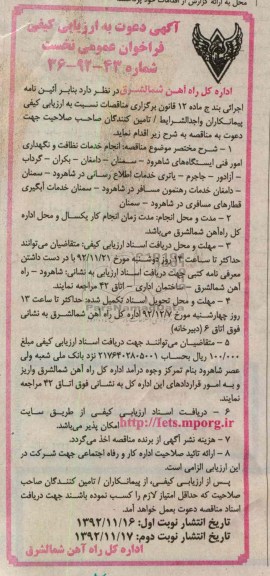 آگهی دعوت به ارزیابی کیفی
فراخوان عمومی نخست
شماره ۴۳-۹۲-۳۶
اداره کل راه آهن شمالشرق در نظر دارد بنابر آئین نامه
اجرائی بند ج ماده ۱۲ قانون برگزاری مناقصات نسبت به ارزیابی کیفی
پیمانکاران واجدالشرایط / تامین کنندگان صاحب صلاحیت جهت
دعوت به مناقصه به شرح زیر اقدام نماید.
۱ - شرح مختصر موضوع مناقصه: انجام خدمات نظافت و نگهداری
امور فنی ایستگاه‌های شاهرود - سمنان - دامغان - بکران - گرداب
- آزادور - جاجرم - باتری خدمات اطلاع رسانی در شاهرود - سمنان
- دامغان خدمات رهنمون مسافر در شاهرود - سمنان خدمات آبگیری
قطارهای مسافری در شاهرود - سمنان
۲ - مدت و محل انجام: مدت زمان انجام کار یکسال و محل اداره
کل راه‌آهن شمالشرق می‌باشد.
۳ - مهلت و محل دریافت اسناد ارزیابی کیفی: متقاضیان می‌توانند
حداکثر تا ساعت ۱۴ روز دوشنبه مورخ ۹۲/۱۱/۲۱ با در دست داشتن
معرفی نامه کتبی جهت دریافت اسناد ارزیابی به نشانی: شاهرود - راه
آهن شمالشرق - ساختمان اداری - اتاق ۴۲ مراجعه نمایند.
۴ - مهلت و محل تحویل اسناد تکمیل شده: حداکثر تا ساعت ۱۳
روز چهارشنبه مورخ ۹۲/۱۲/۷ اداره کل راه آهن شمالشرق به نشانی
فوق اتاق ۶ (دبیرخانه)
۵ - متقاضیان می‌توانند جهت دریافت اسناد ارزیابی کیفی مبلغ
۱۰۰/۰۰۰ ریال به حساب ۲۱۷۶۴۰۲۸۰۵۰۰۱ نزد بانک ملی شعبه ولی
عصر شاهرود بنام تمرکز وجوه درآمد اداره کل راه آهن شمالشرق واریز
و به امور قراردادهای این اداره کل به نشانی فوق اتاق ۴۲ مراجعه
نمایند.
۶ - دریافت اسناد ارزیابی کیفی از طریق سایت
http://iets.mporg.ir امکان پذیر می‌باشد.
۷ - هزینه نشر آگهی از برنده مناقصه اخذ می‌گردد.
۸ - ارائه تائید صلاحیت اداره کار و رفاه اجتماعی جهت شرکت در
این ارزیابی الزامی است.
پس از ارزیابی کیفی، از پیمانکاران / تامین کنندگان صاحب
صلاحیت که حداقل امتیاز لازم را کسب نموده باشند جهت دریافت
اسناد مناقصه دعوت بعمل خواهد آمد.
تاریخ انتشار نوبت اول: ۱۳۹۲/۱۱/۱۶
تاریخ انتشار نوبت دوم: ۱۳۹۲/۱۱/۱۷
اداره کل راه آهن شمالشرق